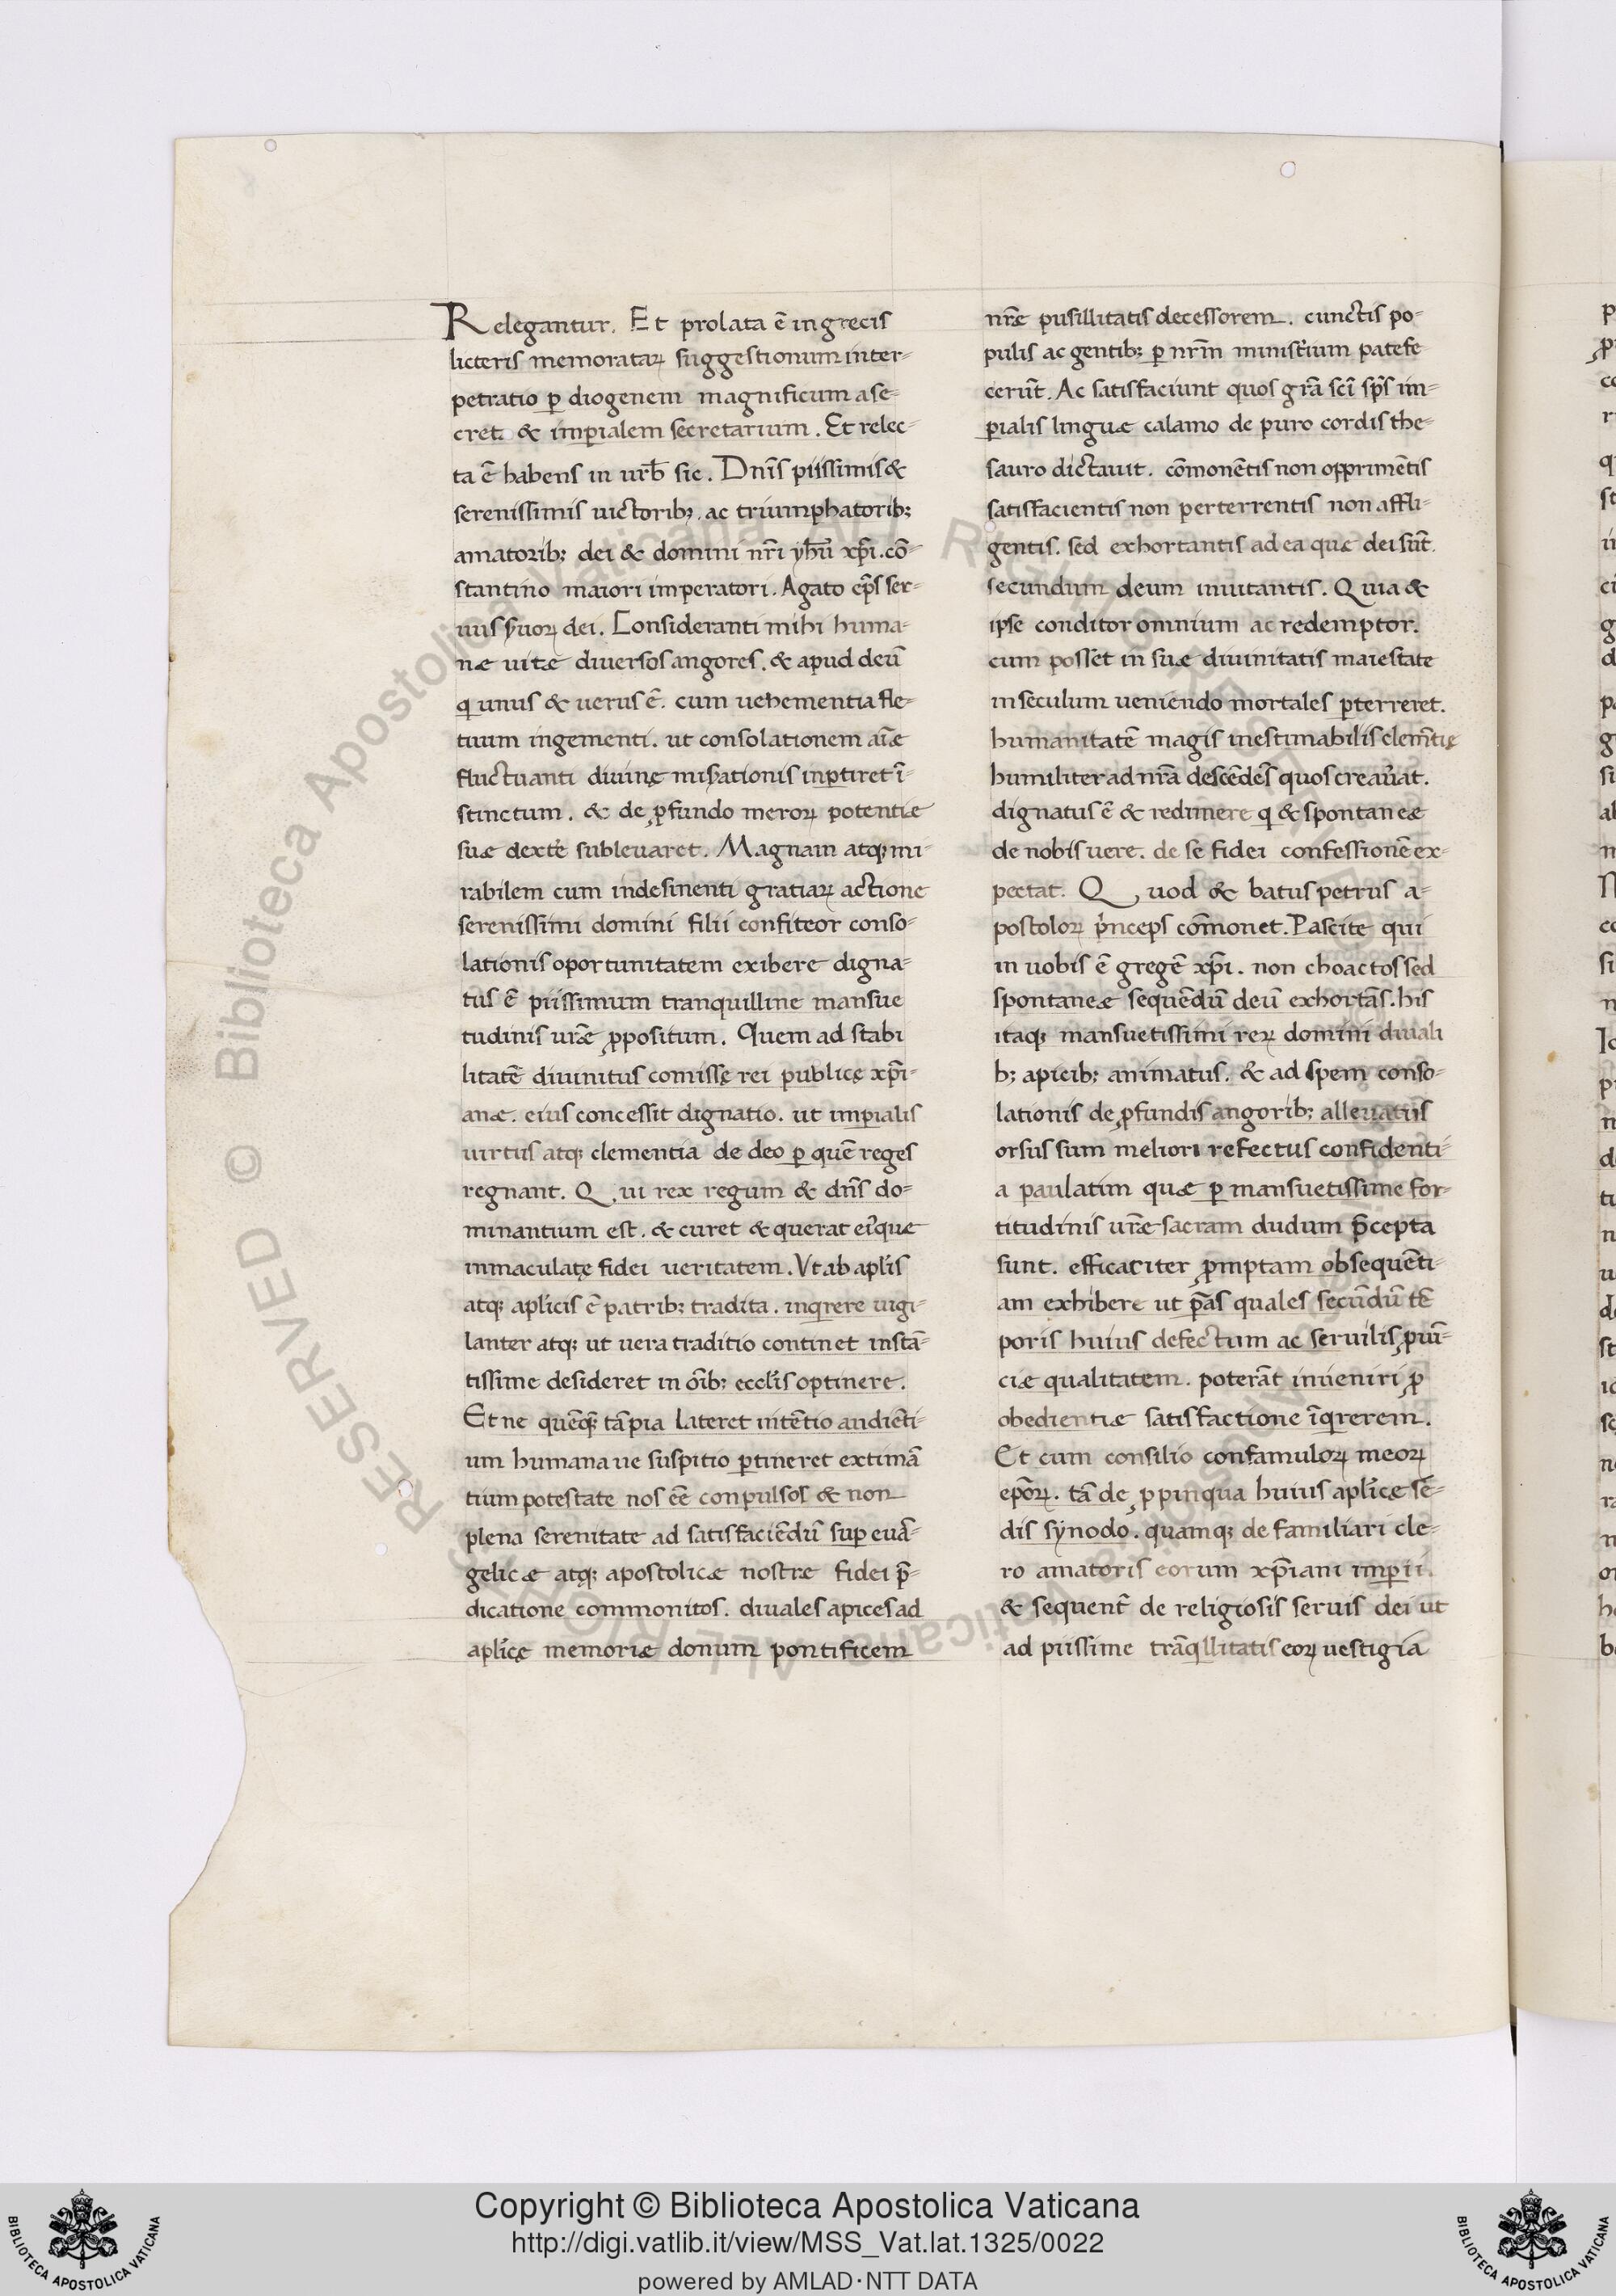 Relegantur. Et prolata ē in grecis
licteris memorataꝝ suggestionum inter-
petratio ꝑ diogenem magnificum a se-
cret. & imꝑialem secretarium. Et relec-
ta ē habens in urƀ sic. Dnīs piissimis &
serenissimis uictorib; ac triumphatorib;
amatorib; dei & domini nr̄i yhū xp̄i. cō-
stantino maiori imperatori. Agato ep̄s ser-
uus ẜuoꝝ dei. Consideranti mihi huma-
næ uitæ diuersos angores. & apud deū
q unus & uerus ē. cum uehementia fle-
tuum ingementi. ut consolationem aīæ
fluctuanti diuinę miẜationis inꝑtiret ī-
stinctum. & de ꝓfundo meroꝝ potentiæ
suæ dexte᷑ subleuaret. Magnam atq; mi-
rabilem cum indesinenti gratiaꝝ actione
serenissimi domini filii confiteor conso-
lationis oportunitatem exibere digna-
tus ē piissimum tranquilline mansue
tudinis urǣ ꝓpositum. Quem ad stabi
litatē diuinitus comissę rei publicę xp̄i-
anæ. eius concessit dignatio. ut imꝑialis
uirtus atq; clementia de deo ꝑ quē reges
regnant. Qui rex regum & dn̄s do-
minantium est. & curet & querat eiꝰque
inmaculatę fidei ueritatem. Vt ab apl̄is
atq; apl̄icis ē patrib; tradita. inqrere uigi-
lanter atq; ut uera traditio continet instā-
tissime desideret in oīb; eccl̄is optinere.
Et ne quēq; tā pia lateret intētio audiēti-
um humana ue suspitio ꝑtineret extimā
tium potestate nos eē conpulsos & non
plena serenitate ad satisfaciēdū suꝑ euā-
gelicæ atq; apostolicæ nostræ fidei p̄-
dicatione commonitos. diuales apices ad
apl̄icę memoriæ donum pontificem
nrǣ pusillitatis decessorem. cunctis po-
pulis ac gentib; ꝑ nrm̄ ministꝰium patefe
cerūt. Ac satisfaciunt quos grā scī sps̄ im-
ꝑialis linguæ calamo de puro cordis the-
sauro dictauit. cōmonētis non opprimētis
satisfacientis non perterrentis non affli-
gentis. sed exhortantis ad ea quæ dei sūt.
secundum deum inuitantis. Quia &
ipse conditor omnium ac redemptor.
cum posset in suæ diuinitatis maiestate
in seculum ueniendo mortales ꝑterreret.
humanitatē magis inestimabilis clem̄tię
humiliter ad nrā descēdēs quos creau᷑at.
dignatus ē & redimere q & spontaneæ
de nobis uere. de se fidei confessionē ex-
pectat. Quod & batus petrus a-
postoloꝝ pꝰnceps cōmonet. Pascite qui
in uobis ē gregē xp̄i. non choactos sed
spontaneæ sequēdū deū exhortās. his
itaq; mansuetissimi reꝝ domini diuali
b; apicib; animatus. & ad spem conso-
lationis de ꝓfundis angorib; alleuatus
orsus sum meliori refectus confidenti-
a paulatim quæ ꝑ mansuetissime for-
titudinis urǣ sacram dudum p̄cepta
sunt. efficaciter ꝓmptam obsequēti-
am exhibere ut p̄as quales secūdū tē
poris huius defectum ac seruilis ꝓuī-
ciæ qualitatem. poterāt inueniri ꝓ
obedientiæ satisfactione īqrerem.
Et cum consilio confamuloꝝ meoꝝ
epōꝝ. tā de ꝓpinqua huius apl̄icæ sē-
dis synodo. quamq; de familiari cle-
ro amatoris eorum xp̄iani imꝑii.
& sequent̄ de religiosis seruis dei ut
ad piissime trāqllitatis eoꝝ uestigia
Copyright © Biblioteca Apostolica Vaticana
http://digi.vatlib.it/view/MSS_Vat.lat.1325/0022
powered by AMLAD·NTT DATA